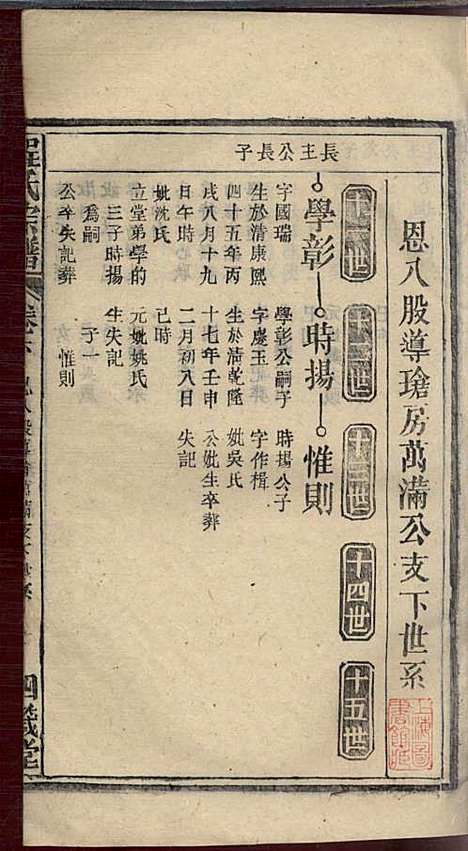 恩八股導瑲房萬滿公支下世系
十一世
十二世
十三世
十四世
十五世
長主公長子
學彰
時揚
惟則
字國瑞
生於清康熙
四十五年丙
戌八月十九
日午時
妣沈氏
立堂弟學的
三子時揚
爲嗣
公卒失記葬
學彰公嗣子
字慶玉
生於清乾隆
十七年壬申
二月初八日
己時
元妣姚氏
生失記
子一
惟則
時揚公子
字作楫
妣吳氏
公妣生卒葬
失記
程氏宗譜
四箴堂
上海圖書館藏